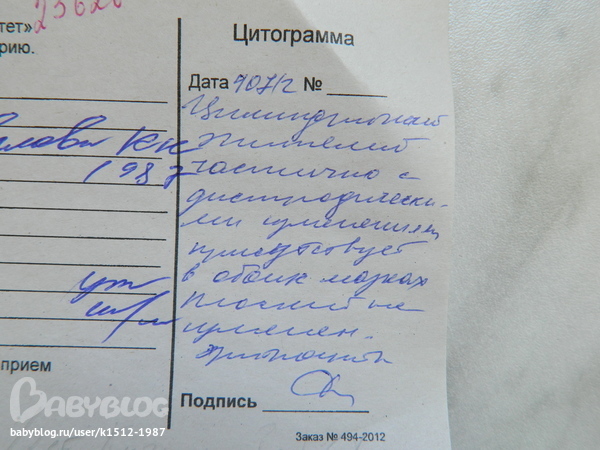 23626
тет»
рию.
Цитограмма
Дата 9.07.12 №
Цилиндрический
эпителий
частично с
дистрофически-
ми изменениями
присутствует
в обоих мазках
плоский не
изменен.
1987
прием
Подпись
Заказ № 494-2012
BABYBLOG
babyblog.ru/user/k1512-1987